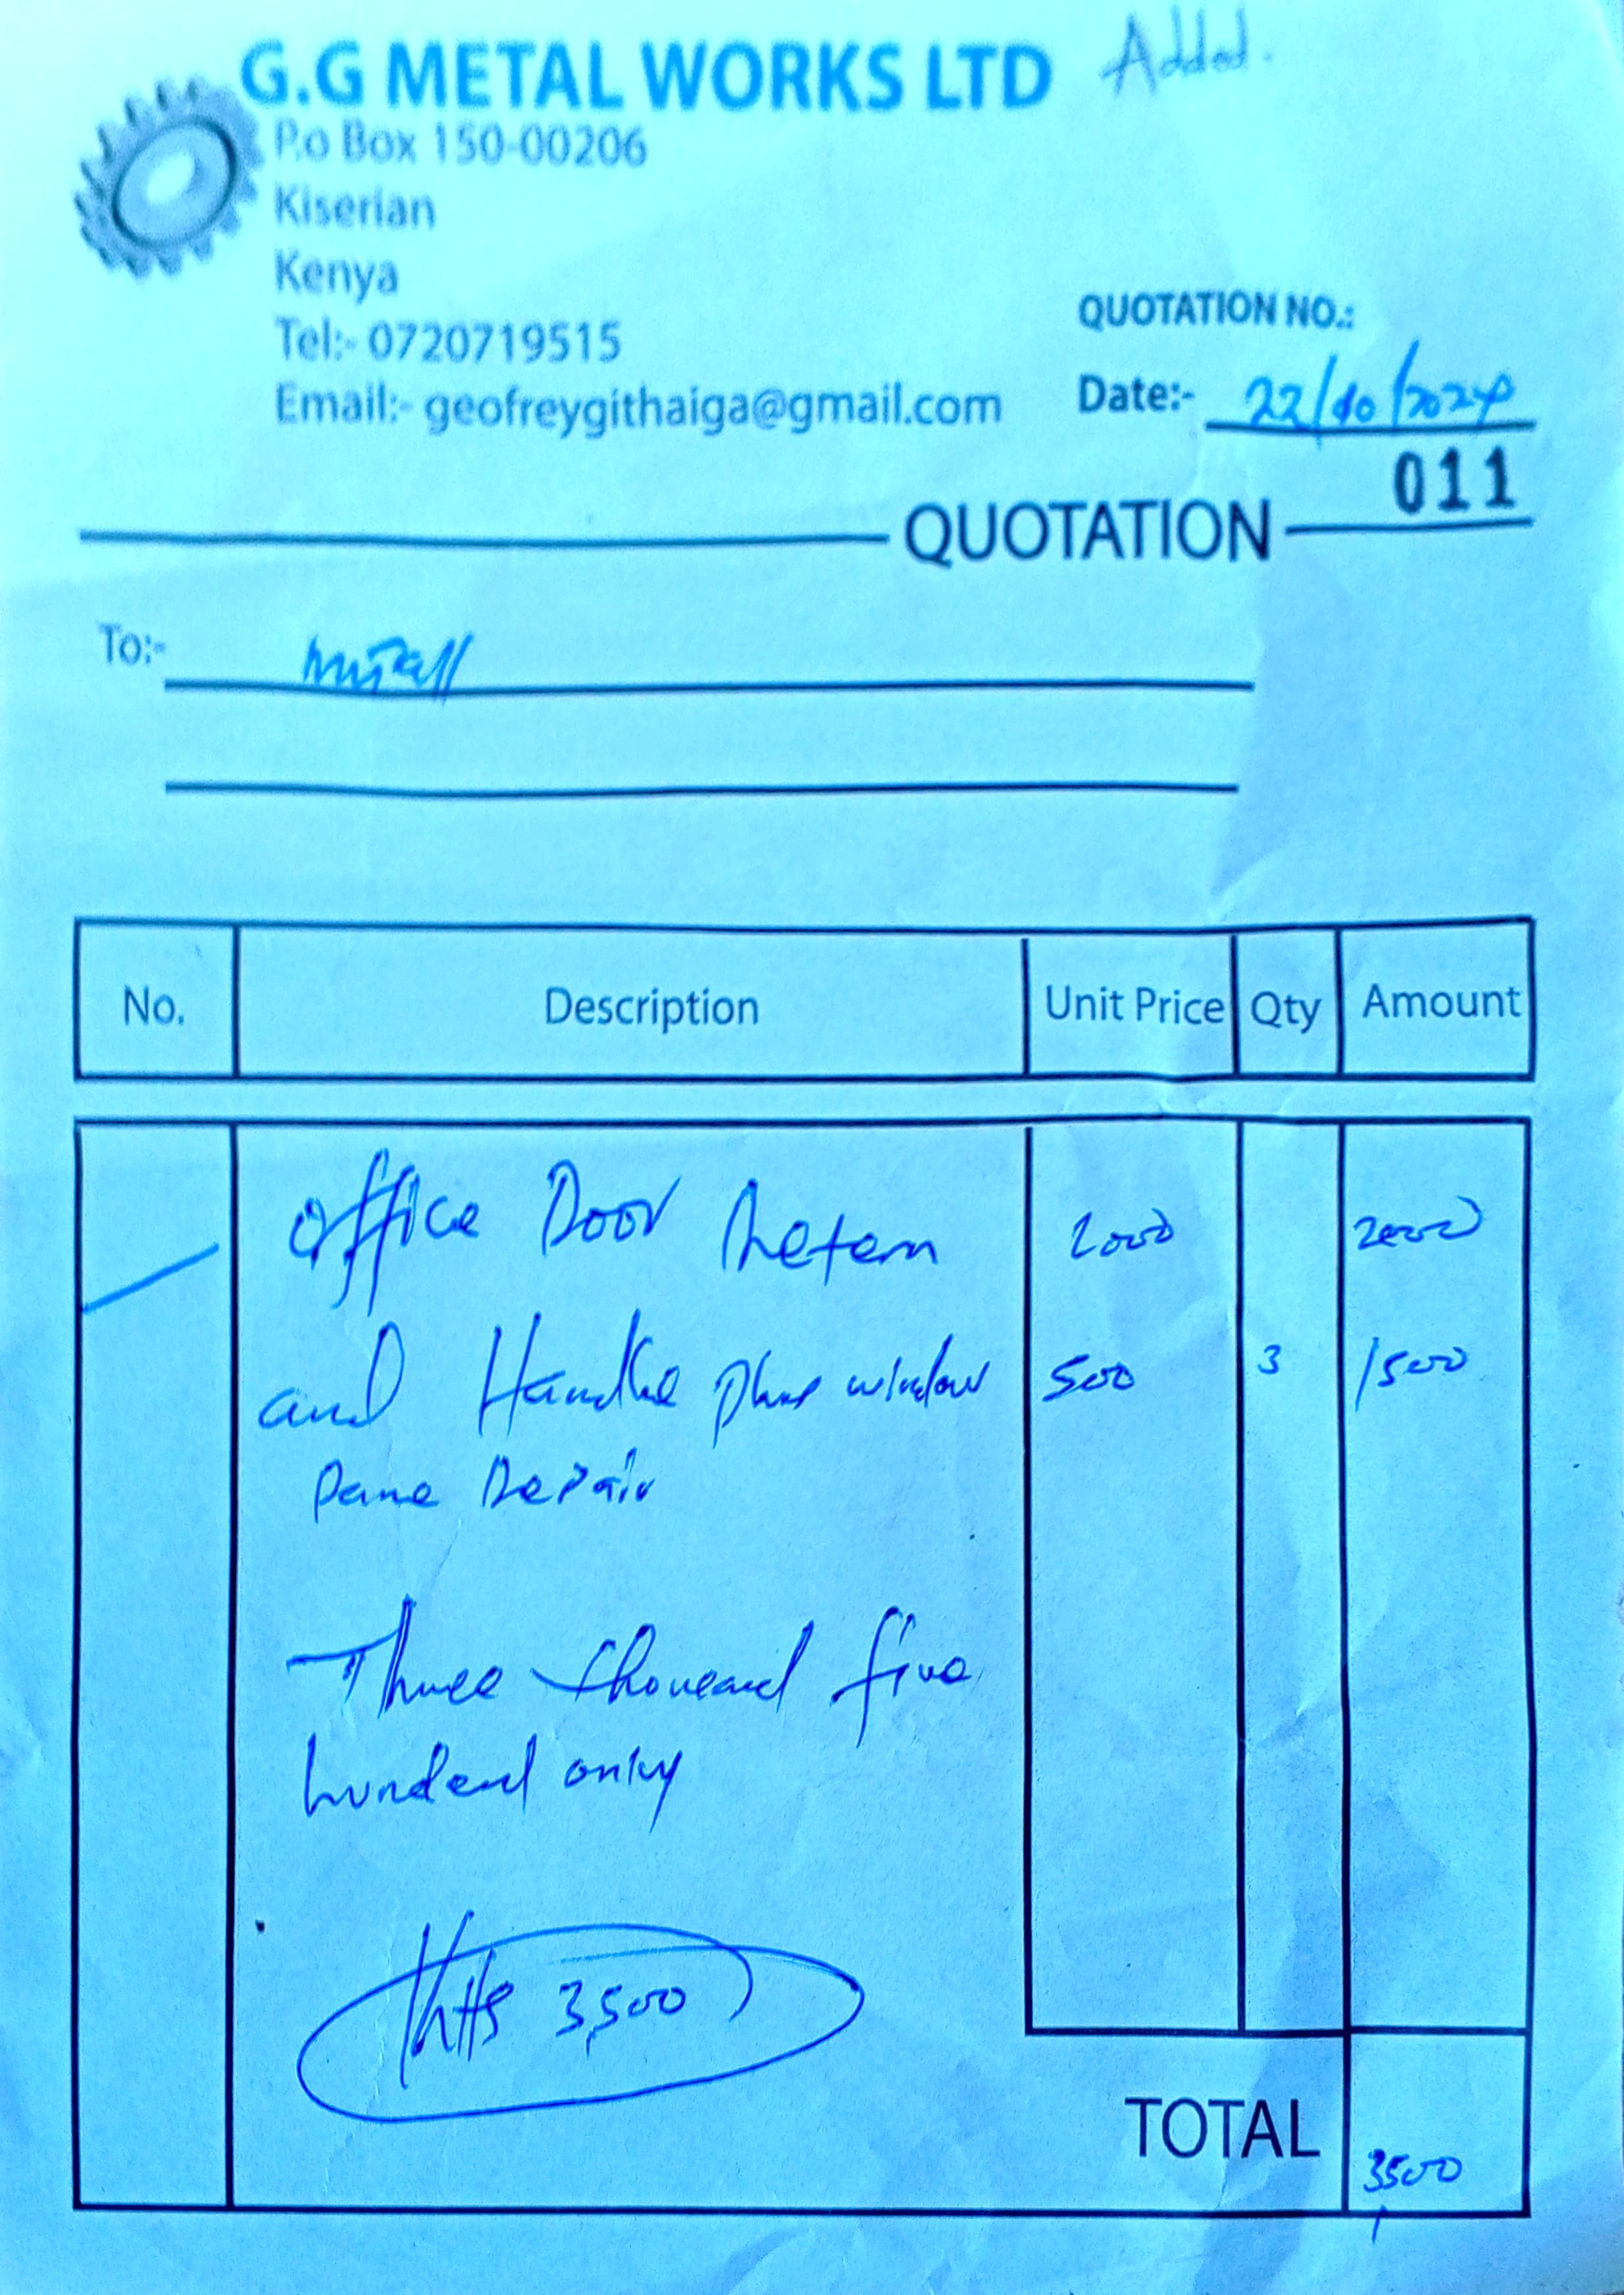 Added.
G.G METAL WORKS LTD
P.o Box 150-00206
Kiserian
Kenya
Tel:- 0720719515
Email:- geofreygithaiga@gmail.com
QUOTATION NO.:
Date:- 22/10/2024
011
QUOTATION
To:-
No. Description Unit Price Qty Amount
Office Door 2000 2000
and Handle plus window 500 3 1500
pane Repair
Three thousand five
hundred only
KHS 3,500
TOTAL 3500